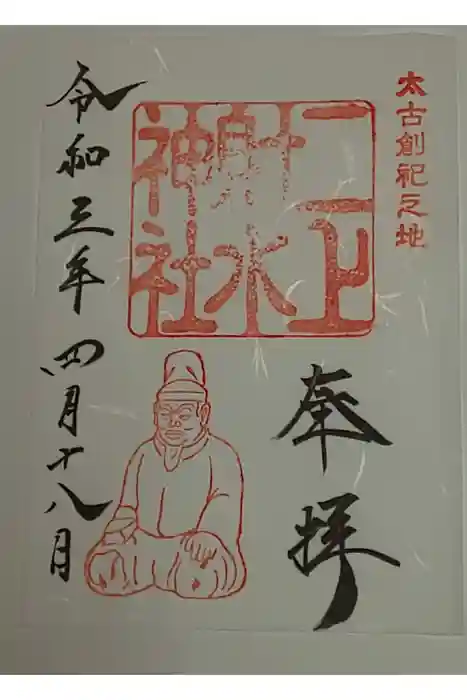 太古創祀之地
二上
射水
神社
奉拝
令和三年四月十八日